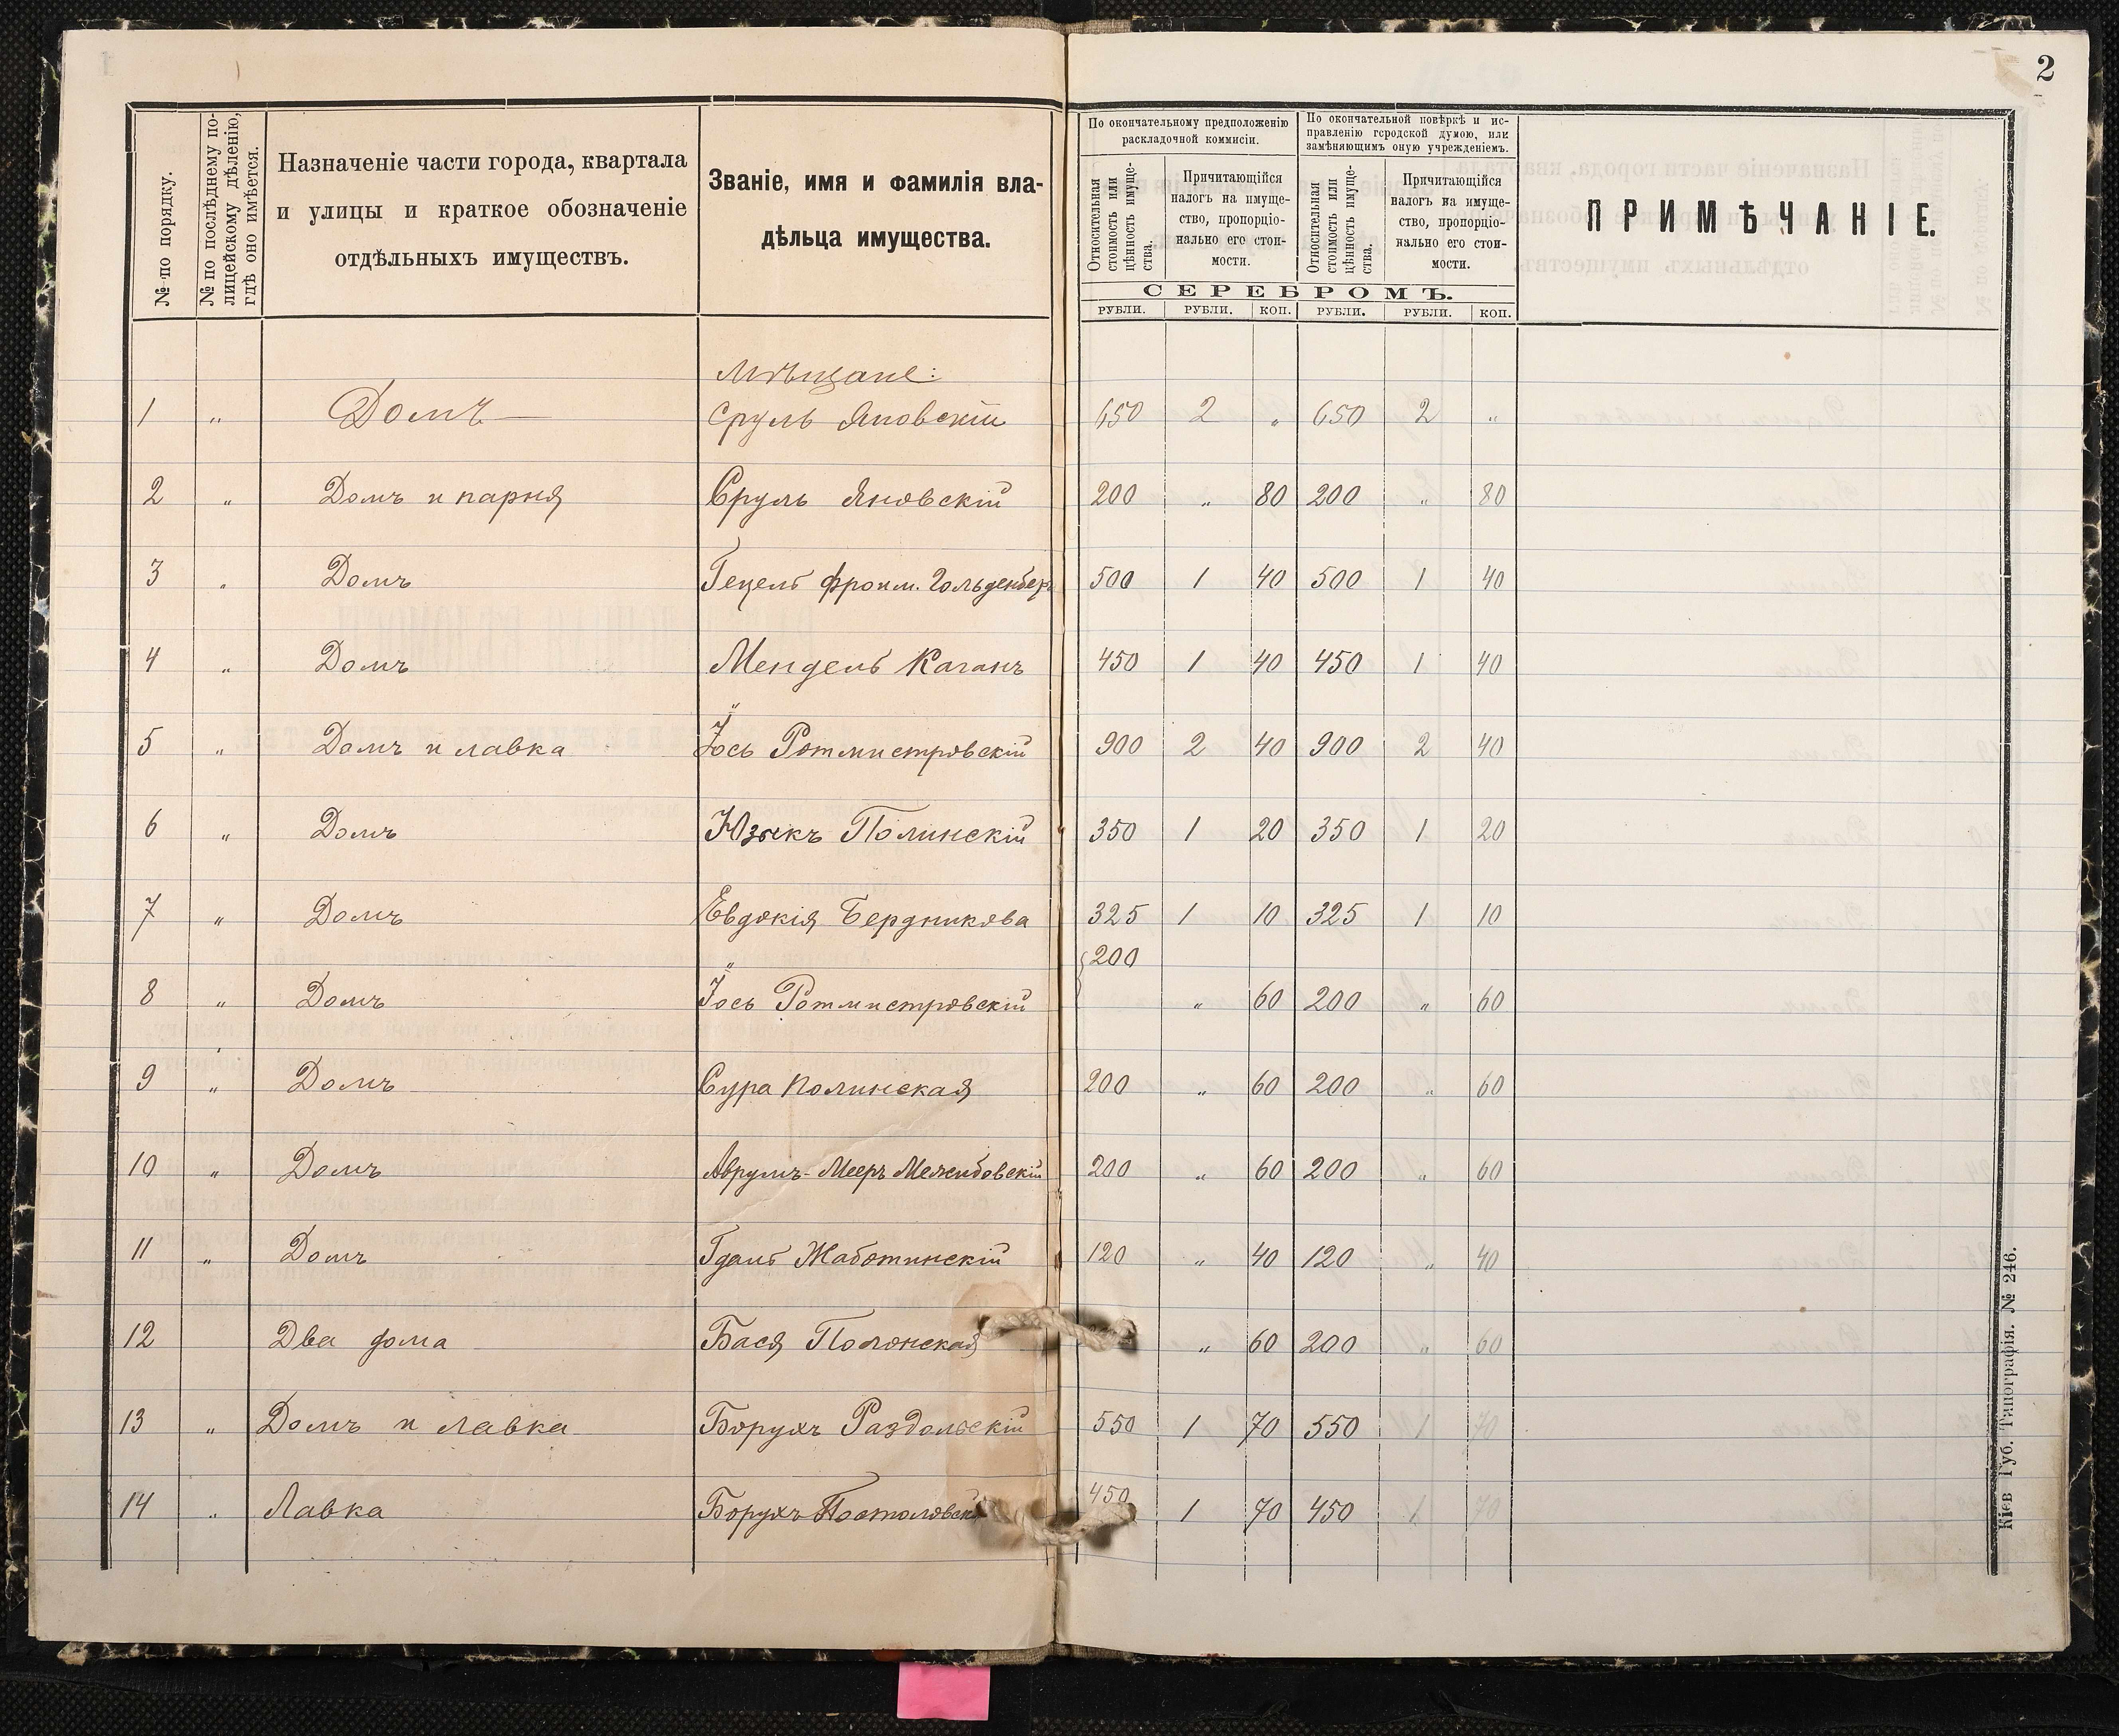 2
№ по порядку.
№ по послѣднему по-
лицейскому дѣленію,
гдѣ оно имѣется.
Назначеніе части города, квартала
и улицы и краткое обозначеніе
отдѣльныхъ имуществъ.
Званіе, имя и фамилія вла-
дѣльца имущества.
По окончательному предположенію
раскладочной коммисіи.
Относительная
стоимость или
цѣнность имуще-
ства.
Причитающійся
налогъ на имуще-
ство, пропорціо-
нально его стои-
мости.
По окончательной повѣркѣ и ис-
правленію городской думою, или
замѣняющимъ оную учрежденіемъ.
Относительная
стоимость или
цѣнность имуще-
ства.
Причитающійся
налогъ на имуще-
ство, пропорціо-
нально его стои-
мости.
СЕРЕБРОМЪ.
РУБЛИ. РУБЛИ. КОП. РУБЛИ. РУБЛИ. КОП.
ПРИМѢЧАНІЕ.
Мѣщане:
1 " Домъ Сруль Яновскій 650 2 " 650 2 "
2 " Домъ и парня Сруль Яновскій 200 " 80 200 " 80
3 " Домъ Гецель Фроим. Гольденберг 500 1 40 500 1 40
4 " Домъ Мендель Каганъ 450 1 40 450 1 40
5 " Домъ и лавка Іось Ротмистровскій 900 2 40 900 2 40
6 " Домъ Юзыкъ Полинскій 350 1 20 350 1 20
7 " Домъ Евдокія Бердникова 325 1 10 325 1 10
8 " Домъ Іось Ротмистровскій 200 " 60 200 " 60
9 " Домъ Сура Полинская 200 " 60 200 " 60
10 " Домъ Аврумъ-Мееръ Межибовскій 200 " 60 200 " 60
11 " Домъ Гдаль Жаботинскій 120 " 40 120 " 40
12 Два дома Бася Полонская " 60 200 " 60
13 " Домъ и лавка Борухъ Раздольскій 550 1 70 550 1 70
14 " Лавка Борухъ 450 1 70 450 1 70
Кіев Губ. Типографія. № 246.